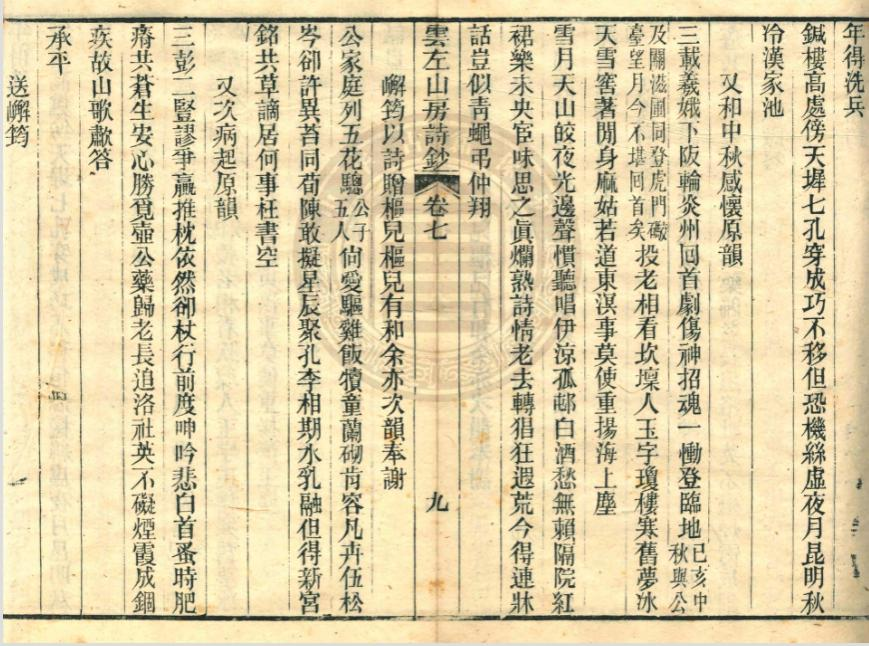 年得洗兵
鍼樓高處傍天墀七孔穿成巧不移但恐機絲虛夜月昆明秋
冷漢家池
又和中秋感懷原韻
三載羲娥下阪輪炎州回首劇傷神招魂一慟登臨地己亥中秋與公
及關滋圃同登虎門礮臺望月今不堪回首矣投老相看坎壈人玉宇瓊樓寒舊夢冰
天雪窖著閒身麻姑若道東溟事莫使重揚海上塵
雪月天山皎夜光邊聲慣聽唱伊涼孤邨白酒愁無賴隔院紅
裙樂未央宦味思之眞爛熟詩情老去轉猖狂遐荒今得連牀
話豈似青蠅弔仲翔
雲左山房詩鈔 卷七 九
嶰筠以詩贈樞兒樞兒有和余亦次韻奉謝
公家庭列五花驄公子五人尙愛驅雞飯犢童蘭砌肯容凡卉伍松
岑卻許異苔同荀陳敢擬星辰聚孔李相期水乳融但得新宮
銘共草謫居何事枉書空
又次病起原韻
三彭二豎謬爭贏推枕依然卻杖行前度呻吟悲白首蚤時肥
瘠共蒼生安心勝覓壺公藥歸老長追洛社英不礙煙霞成錮
疾故山歌歗答
承平
送嶰筠